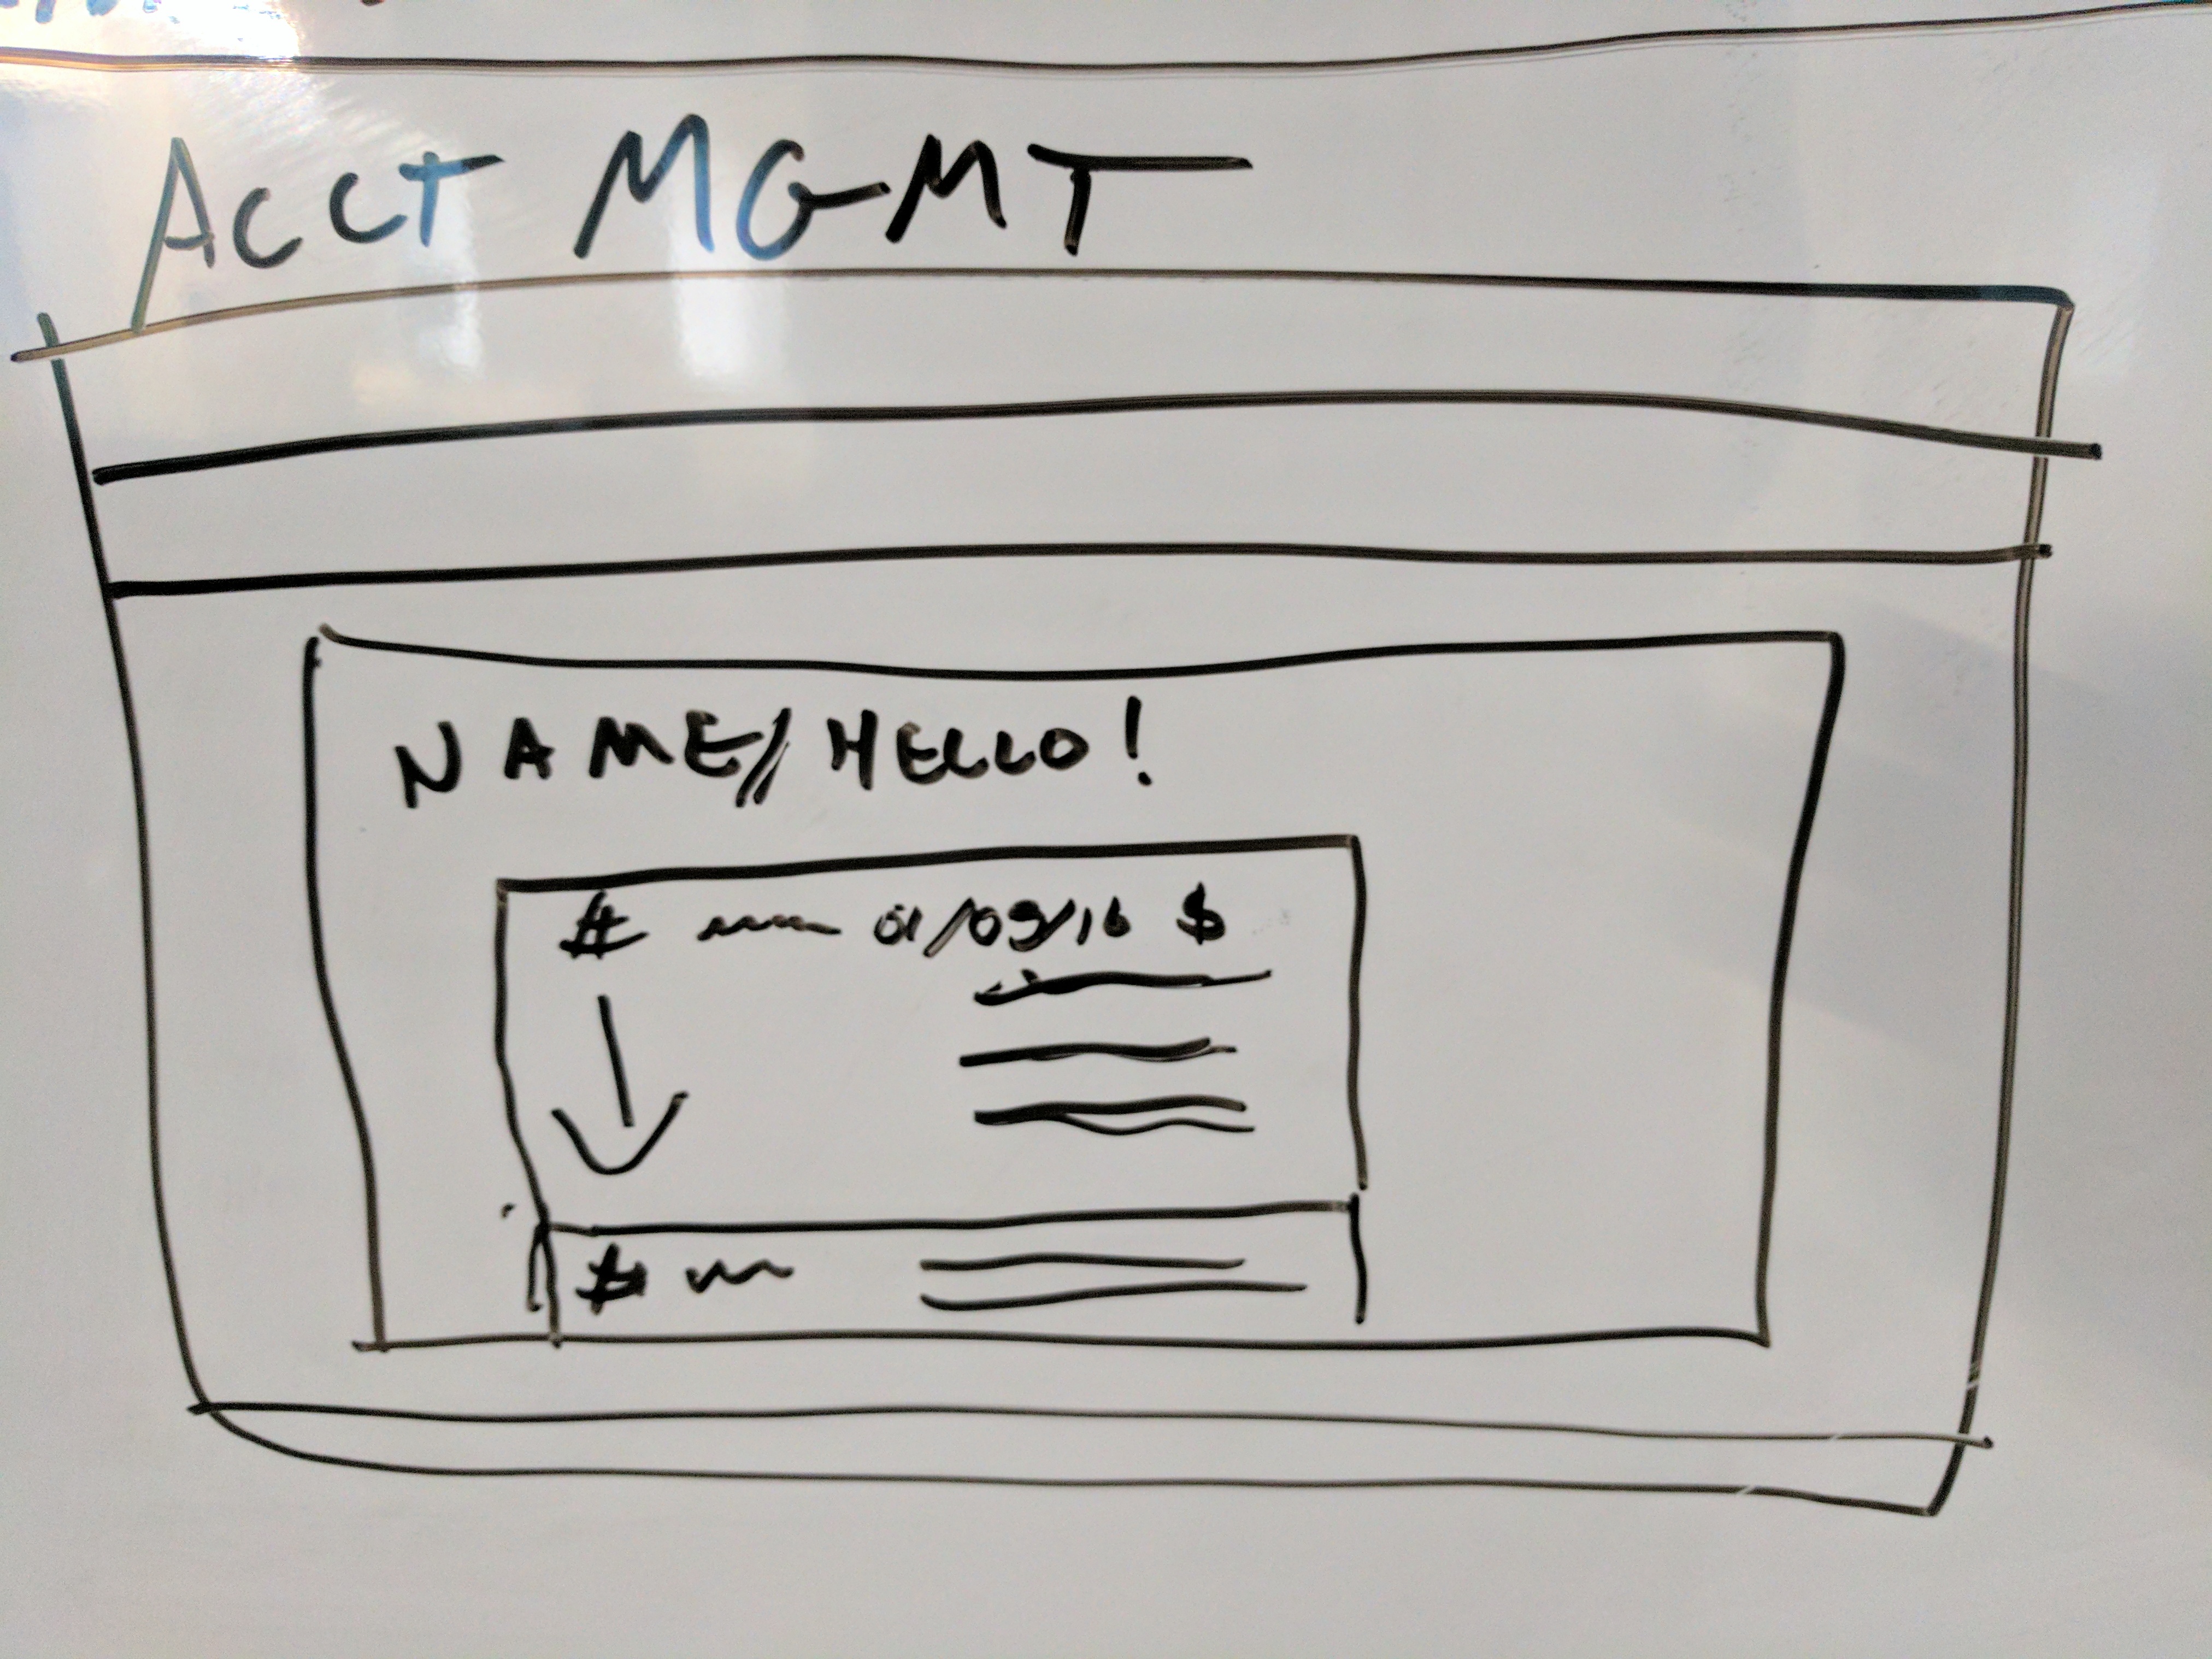 ACCT MGMT
NAME// HELLO!
# 01/09/16 $
#